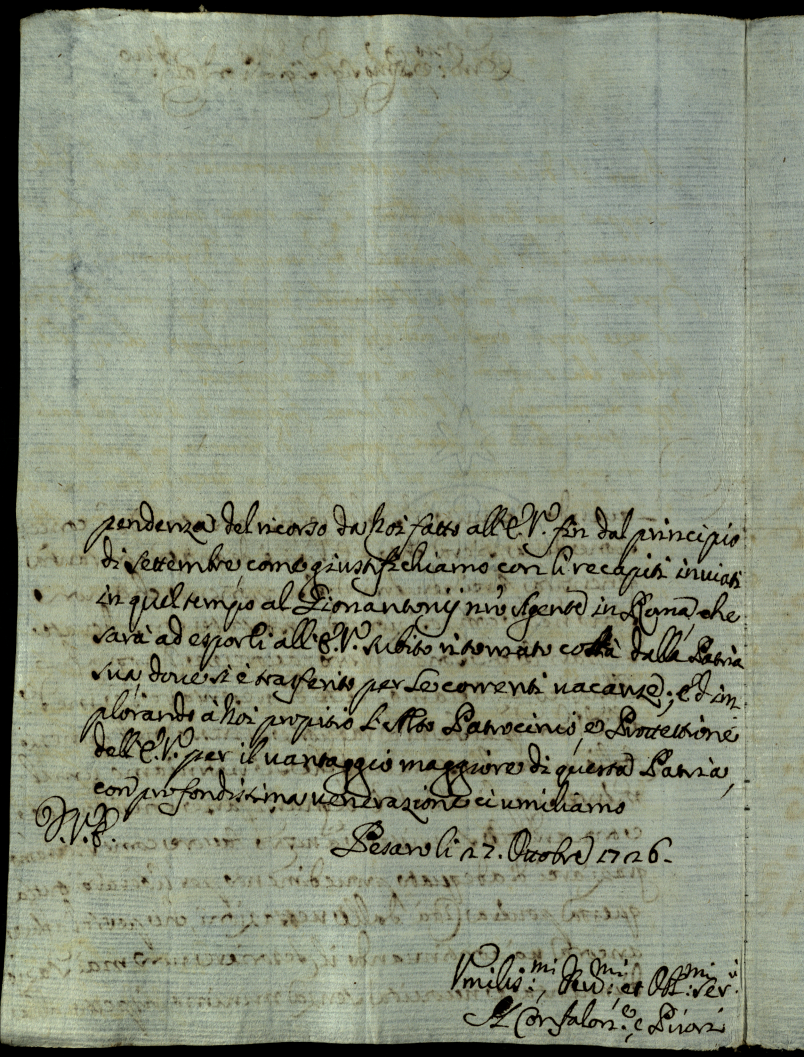 pendenza del ricorso da Noi fatto all'E.V. fin dal principio
di Settembre, come giustifichiamo con li recapiti inviati
in quel tempo al Lionantonij nro Agente in Roma, che
sarà ad esporli all'E.V. subito ritornato costà dalla Patria
sua, dove si è trasferito per le correnti vacanze; ed im
plorando à Noi propitio Patrocinio, e Protettione
dell'E.V. per il vantaggio maggiore di questa Patria,
con profondissima venerazione ci umiliamo
D.V.E.
Pesaro li 27. Ottobre 1726.
Vmilis:mi, Div:mi et Obl:mi Ser:ri
Il Confalon:e, e Priori